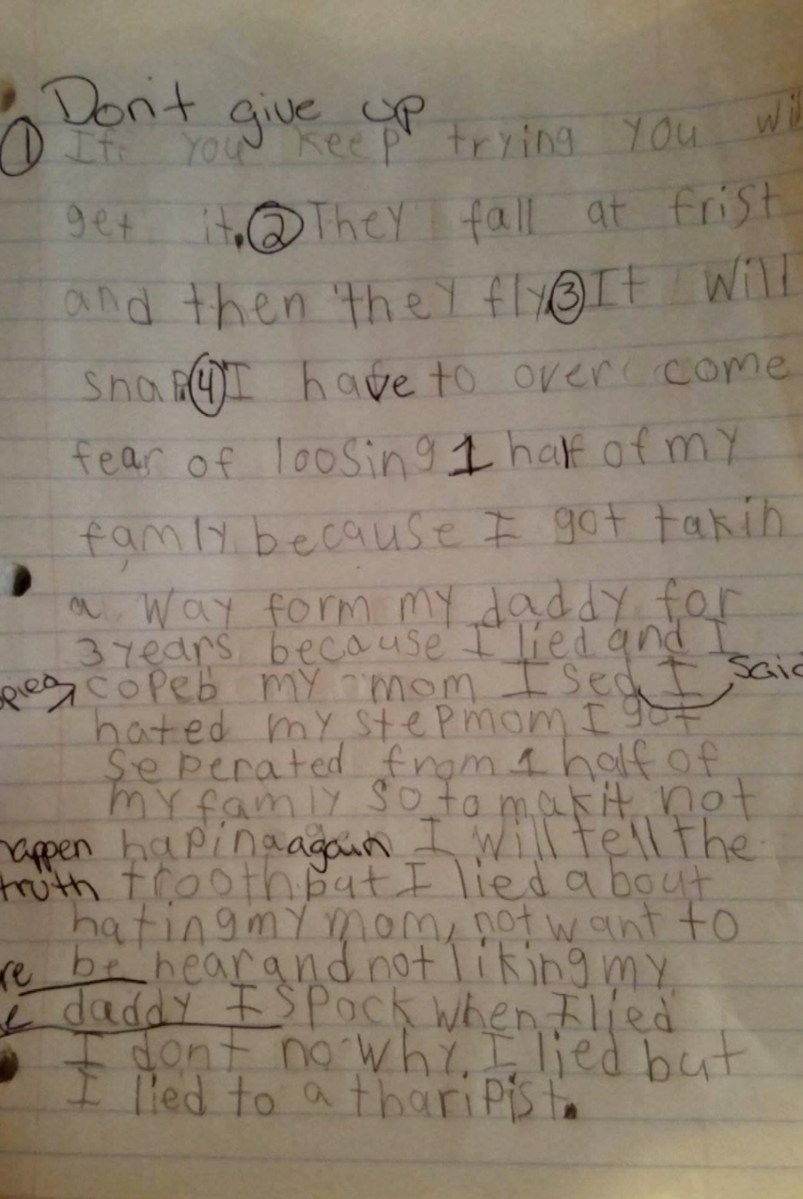 Don't give up
① If you keep trying you wil
get it. ② They fall at frist
and then they fly ③ It will
snap. ④ I have to over come
fear of loosing 1 half of my
famly because I got takin
a way form my daddy for
3 years because I lied and I
copeb my mom I sed I said
hated my stepmom I got
seperated from 1 half of
my famly so to makit not
happen hapina again I will tell the
truth trooth but I lied about
hating my mom, not want to
re be hear and not liking my
daddy I spock when I lied
I dont no why I lied but
I lied to a tharipist.